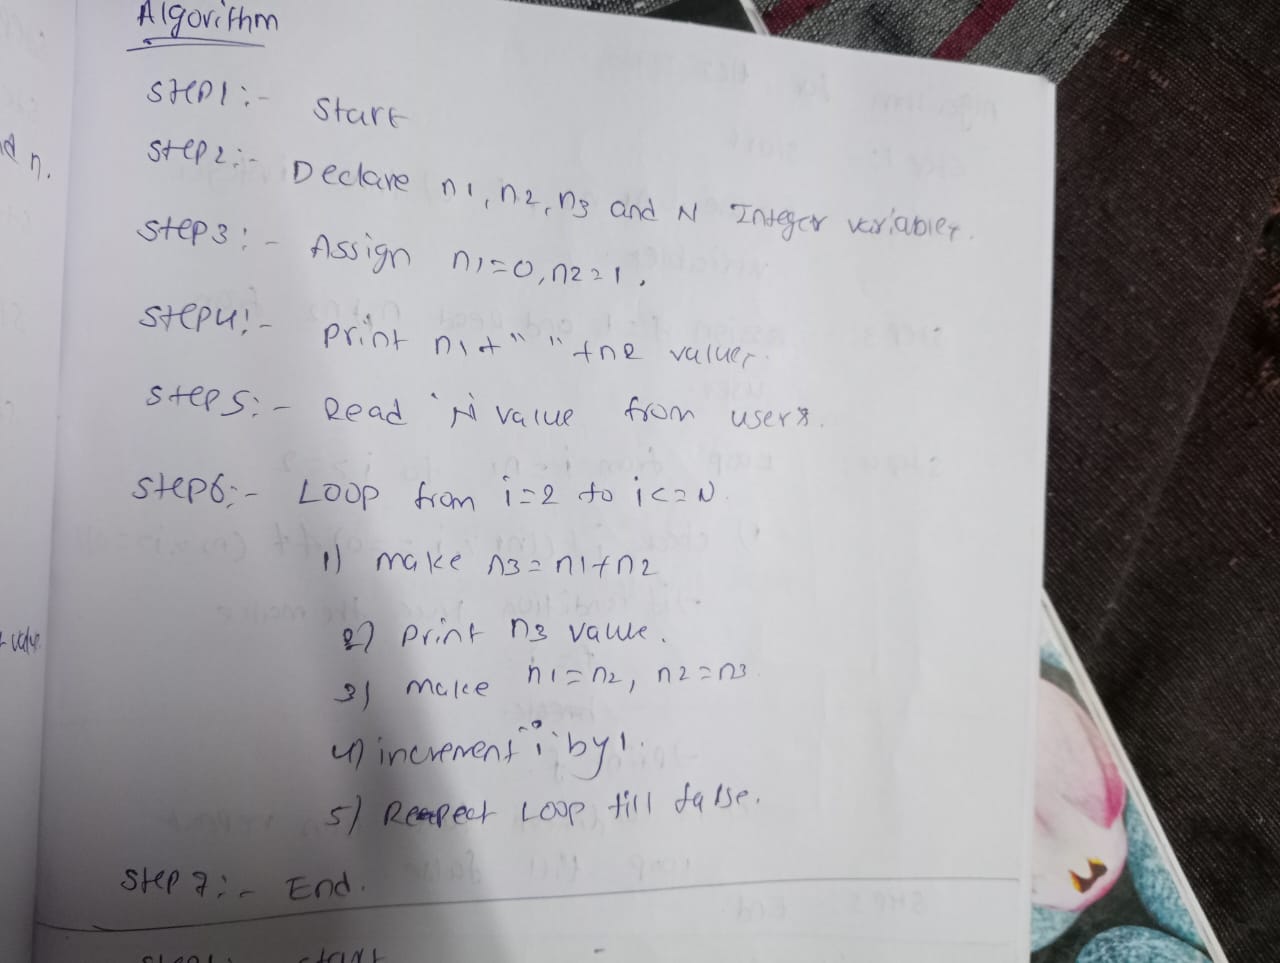 Algorithm
Step1:- Start
Step2:- Declare n1, n2, n3 and N Integer variables.
Step3:- Assign n1=0, n2=1.
Step4:- print n1+" "+n2 values.
Step5:- Read 'N' value from users.
Step6:- LOOP from i=2 to i<=N
1) make n3=n1+n2
2) print n3 value.
3) make n1=n2, n2=n3
4) increment "i" by 1.
5) Reapeat LOOP till false.
Step7:- End.
nd n.
start